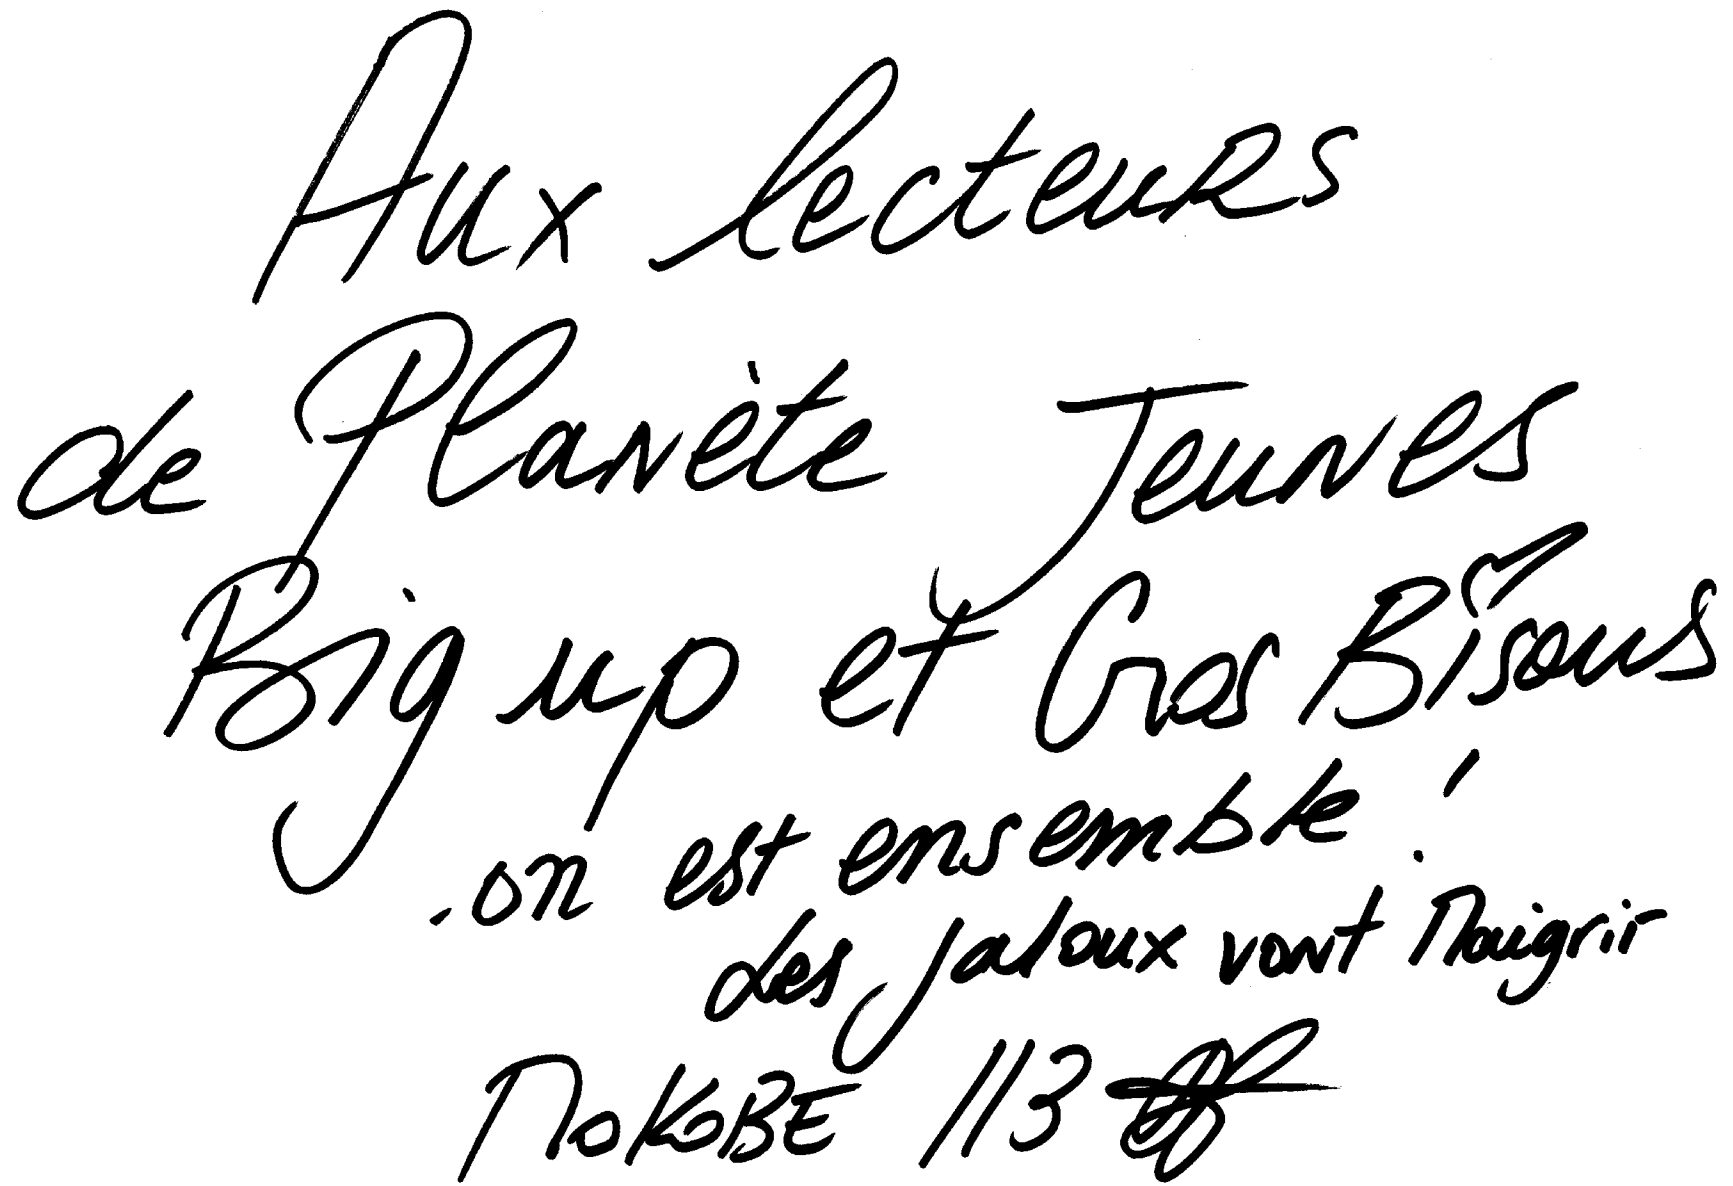 Aux lecteurs
de Planète Jeunes
Big up et Gros Bisous
. on est ensemble !
Les jaloux vont Maigrir
MOKOBE 113